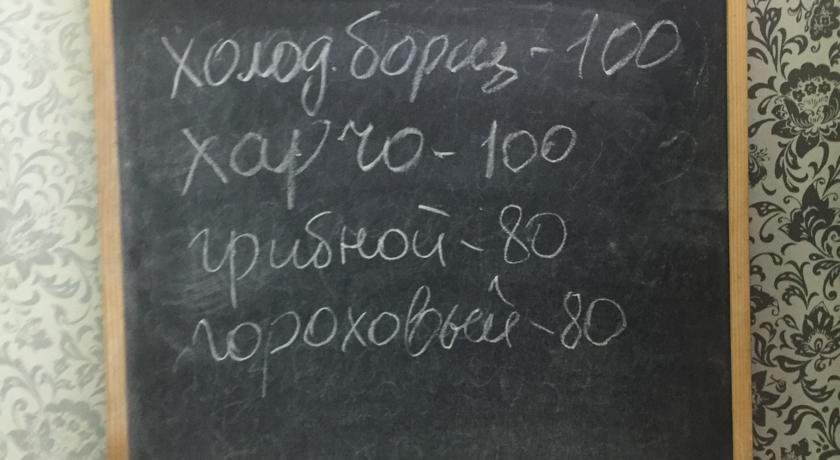 холод. борщ - 100
харчо - 100
грибной - 80
гороховый - 80